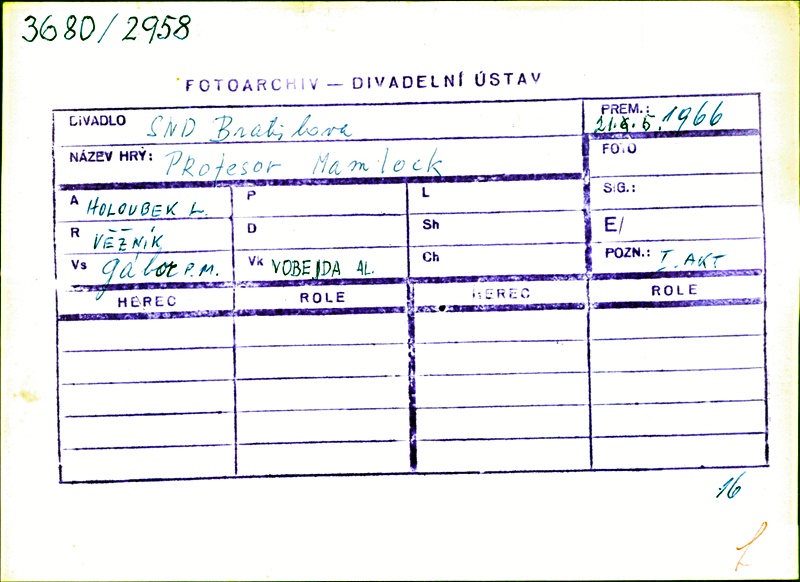 3680/2958
FOTOARCHIV — DIVADELNÍ ÚSTAV
DIVADLO SND Bratislava
PREM.: 21.5. 1966
NÁZEV HRÝ: PROfesor Mamlock
FOTO
A HOLOUBEK L.
P
L
SIG.:
R VĚŽNÍK
D
Sh
E/
Vs Gábor P.M.
Vk VOBEJDA AL.
Ch
POZN.: I. AKT
HEREC ROLE HEREC ROLE
16